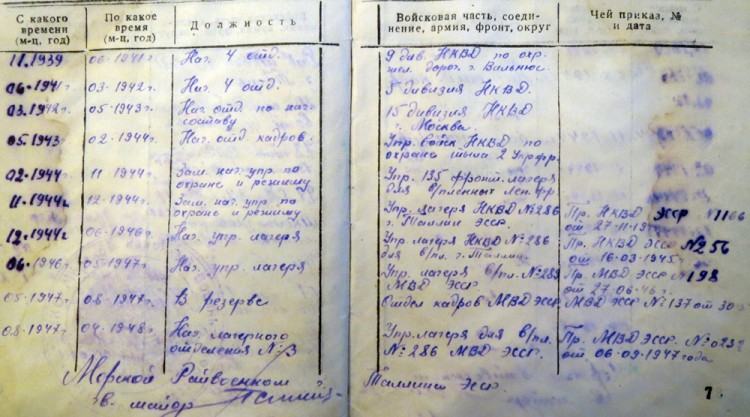 С какого времени (м-ц, год)
По какое время (м-ц, год)
Должность
Войсковая часть, соеди-
нение, армия, фронт, округ
Чей приказ, №
и дата
11.1939 06-1941г. Нач. 4 отд. 9 див. НКВД по охр.
жел. дорог. г. Вильнюс.
06-1941г 03-1942г. Нач. 4 отд. 5 дивизия НКВД.
03.1942г. 05-1943г. Нач. отд. по нач. 15 дивизия НКВД
составу г. Москва.
05.1943 02-1944г. Нач. отд. кадров. Упр. войск НКВД по
охране тыла 2 Укр фр.
02-1944г 11 1944г. Зам. нач. упр. по Упр. 135 фронт. лагеря
охране и режиму для в/пленных Лен. фр.
11-1944г 12-1944г. Зам. нач. упр. по Упр. лагеря НКВД № 286 Пр. НКВД ЭССР № 1166
охране и режиму г. Таллин ЭССР. от 27-11-
12-1944г 06-1946г. Нач. упр. лагеря Упр. лагеря НКВД № 286 Пр. НКВД ЭССР № 56
для в/пл. г. Таллин. от 16-03-1945г.
06-1946г. 05-1947г. Нач. упр. лагеря Упр. лагеря в/пл. № Пр. МВД ЭССР № 198
МВД ЭССР от 27-06-46г.
05-1947г 08-1947г. В резерве Отдел кадров МВД ЭССР МВД ЭССР № 137 от
08-1947г 04-1948г. Нач. лагерного Упр. лагеря для в/пл. Пр. МВД ЭССР.
отделения № 3 № 286 МВД ЭССР. от 06-09-1947 года
Морской Райвоенком Таллин ЭССР
г. в. майор
7